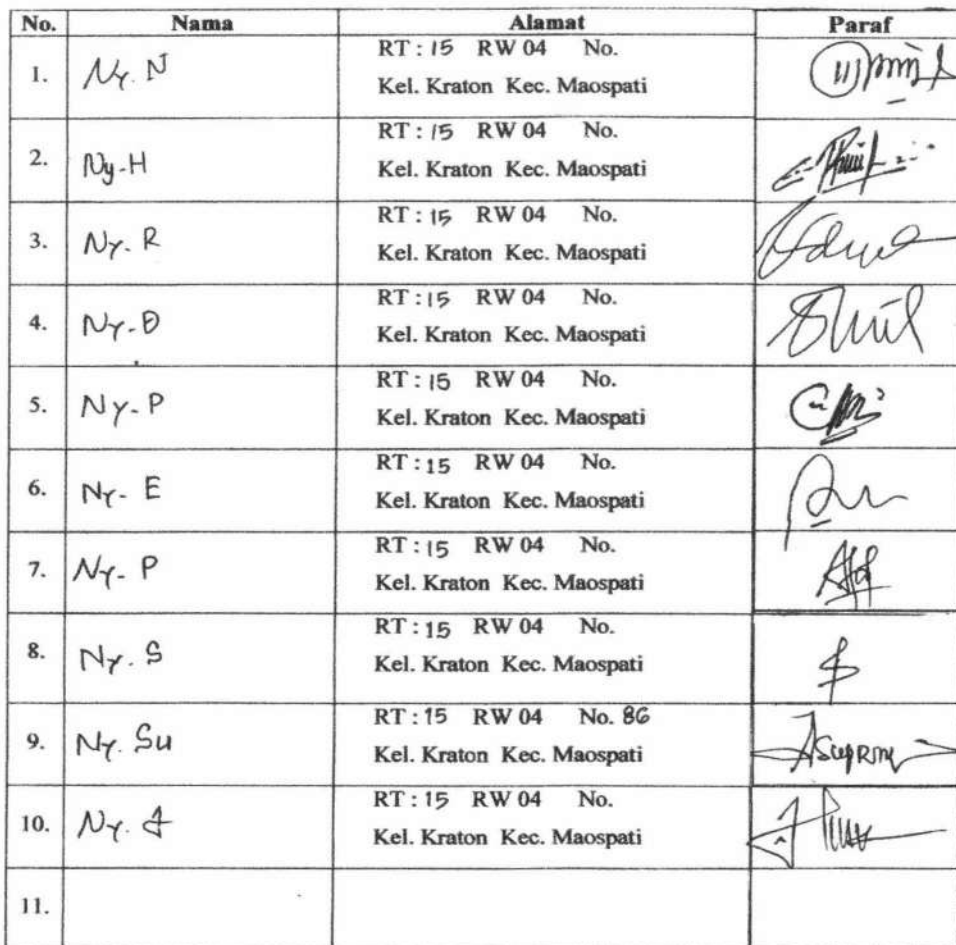 No. Nama Alamat Paraf
1. Ny. N RT : 15 RW 04 No.
Kel. Kraton Kec. Maospati
2. Ny-H RT : 15 RW 04 No.
Kel. Kraton Kec. Maospati
3. Ny. R RT : 15 RW 04 No.
Kel. Kraton Kec. Maospati
4. Ny-D RT : 15 RW 04 No.
Kel. Kraton Kec. Maospati
5. Ny-P RT : 15 RW 04 No.
Kel. Kraton Kec. Maospati
6. Ny- E RT : 15 RW 04 No.
Kel. Kraton Kec. Maospati
7. Ny- P RT : 15 RW 04 No.
Kel. Kraton Kec. Maospati
8. Ny. S RT : 15 RW 04 No.
Kel. Kraton Kec. Maospati
9. Ny. Su RT : 15 RW 04 No. 86
Kel. Kraton Kec. Maospati
10. Ny. RT : 15 RW 04 No.
Kel. Kraton Kec. Maospati
11.